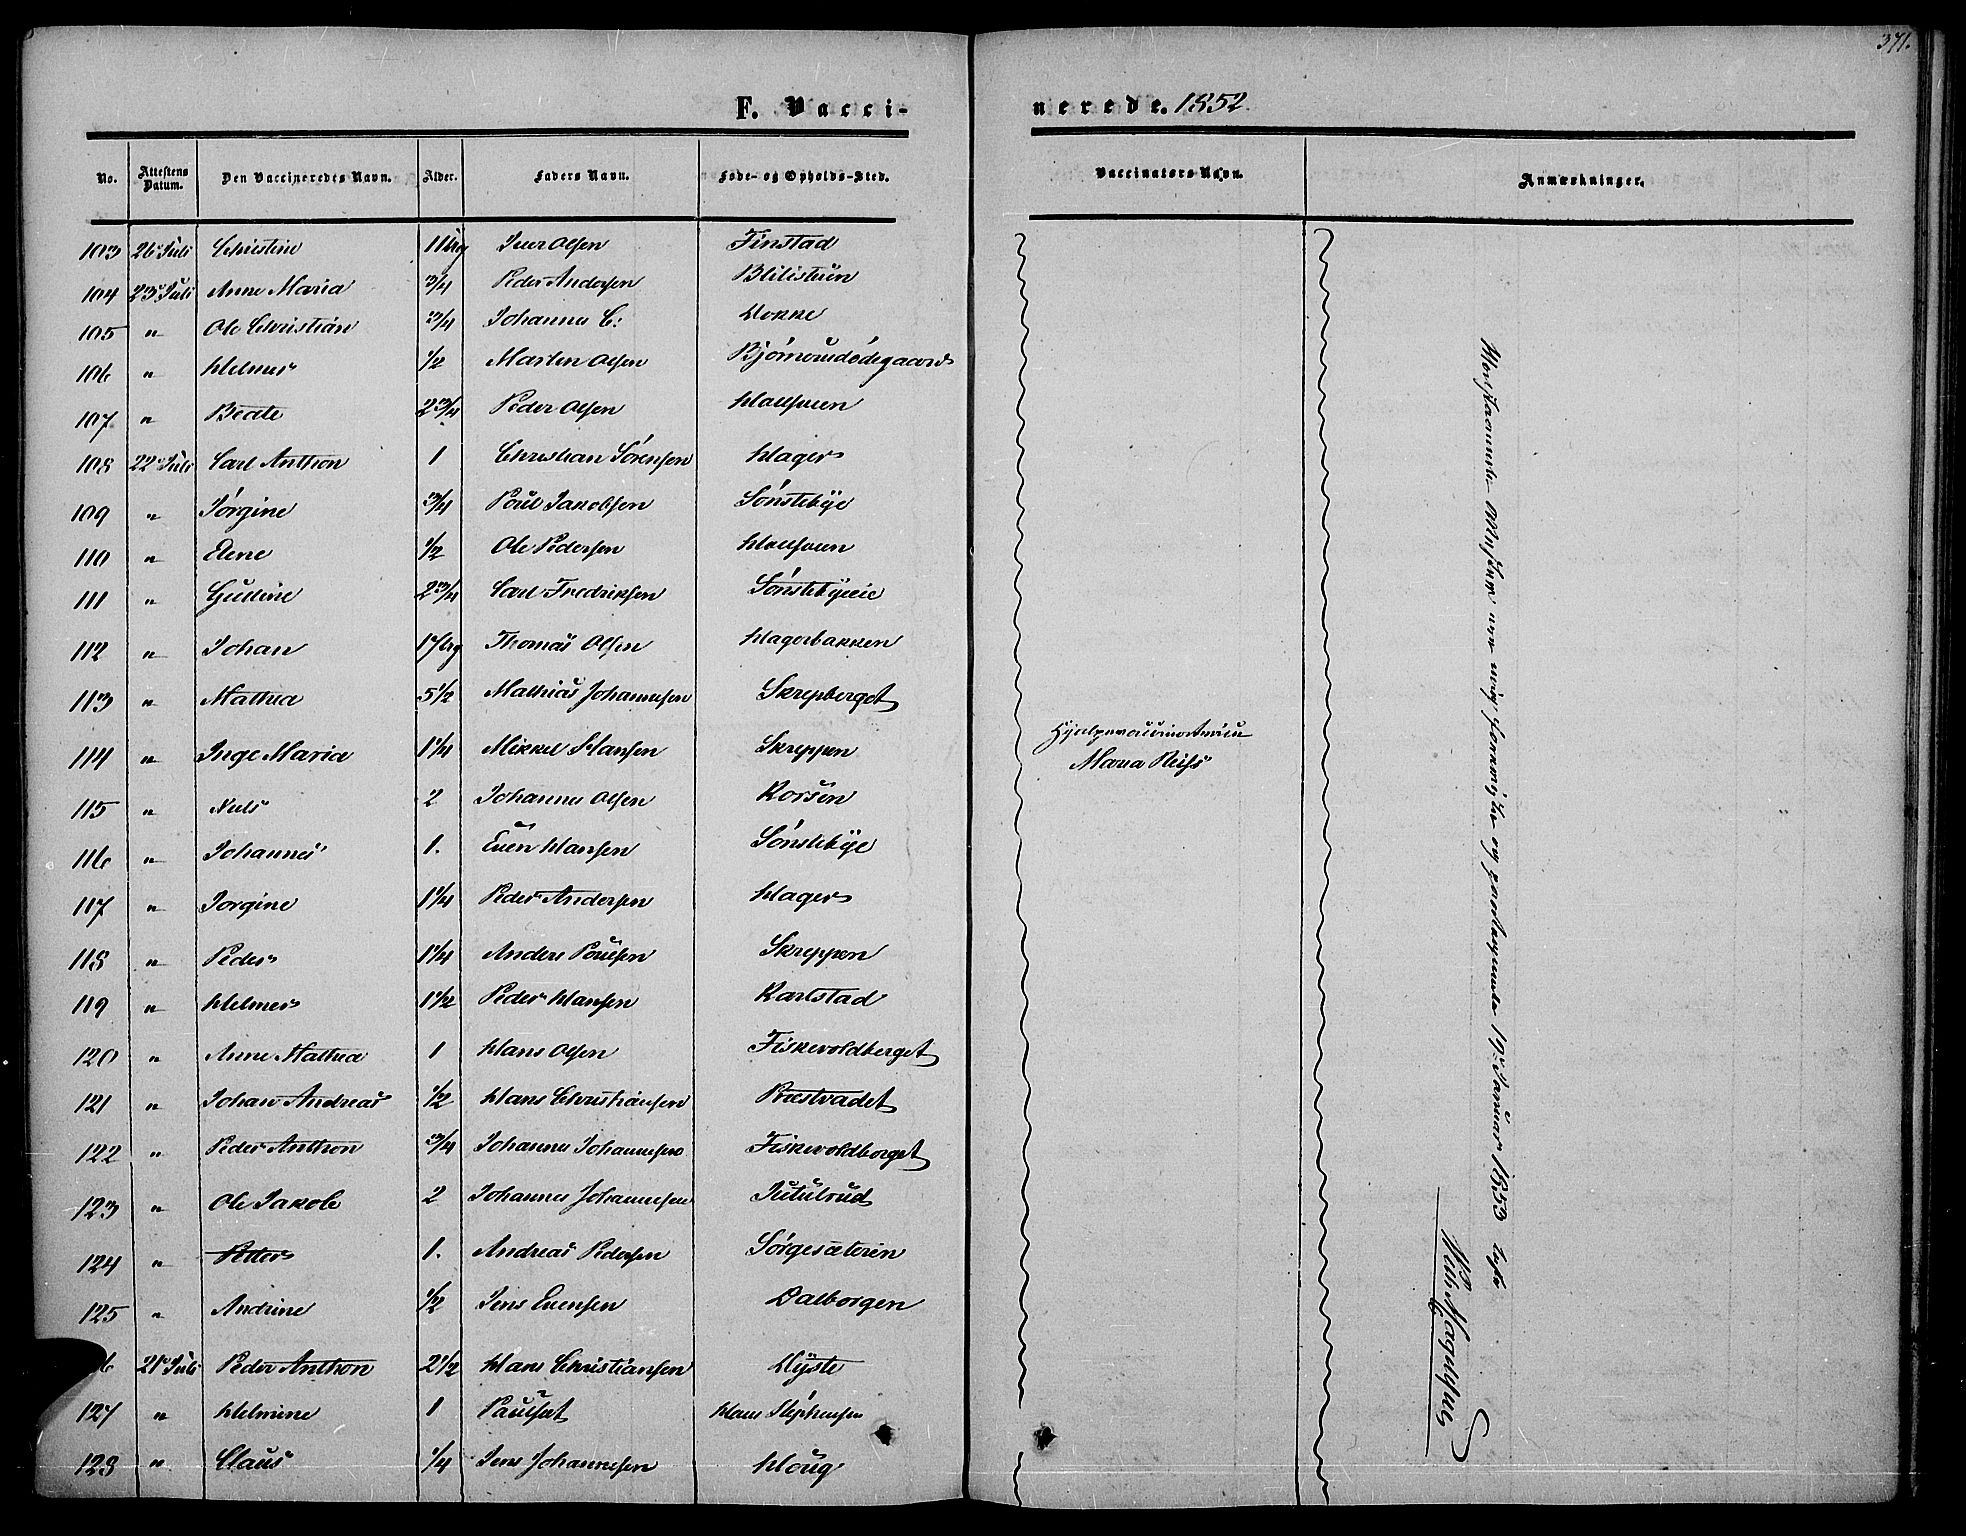 371.
F. Vacci-
nerede. 1852.
No. Attestens Datum. Den Vaccineredes Navn. Alder. Faders Navn. Føde- og Opholds-Sted.
Vaccinators Navn. Anmærkninger.
103 26 Juli Christine 11 Iver Olsen Finstad
104 23 Juli Anne Maria 3/4 Peder Andersen
105 " Ole Christian 3/4 Johannes C: Hokke
106 " Helmer 1/2 Marten Olsen Bjørnerudødegaard
107 " Beate 2 3/4 Peder Olsen
108 22 Juli Carl Anthon 1 Christian Sørensen Hager
109 " Jørgine 3/4 Poul Jakobsen Sønstebye
110 " Elene 1/2 Ole Pedersen
111 " Gustine 2 3/4 Carl Fredriksen Sønstebyeie
112 " Johan 17 Thomas Olsen Hagerbakken
113 " Mathea 5 1/2 Mathias Johannesen Skrepberget
114 " Inge Maria 1 1/4 Mikkel Hansen Skreppen
115 " Niels 2 Johannes Olsen Korsen
116 " Johannes 1. Even Hansen Sønstebye
117 " Jorgine 1 1/4 Peder Andersen Hager
118 " Peder 1 1/4 Anders Poulsen Skreppen
119 " Helmer 1 1/2 Peder Hansen Karlstad
120 " Anne Mathea 1 Hans Olsen Fiskevoldberget
121 " Johan Andreas 1/2 Hans Christiansen Præstvadet
122 " Peder Anthon 3/4 Johannes Johannesen Fiskevoldberget
123 " Ole Jakob 2 Johannes Johannesen Jutulrud
124 " Petter 1. Andreas Pedersen Sørgesæteren
125 " Andrine 1/2 Jens Evensen Dalborgen
6 21 Juli Peder Anthon 2 1/2 Hans Christiansen
127 " Helmine 1 Paulsæt Hans Stephensen
128 " Claus 1/4 Jens Johannesen Houg
Hjelpevaccinatricen
Maria Reiss
og 19 Januar 1853
Magnussen